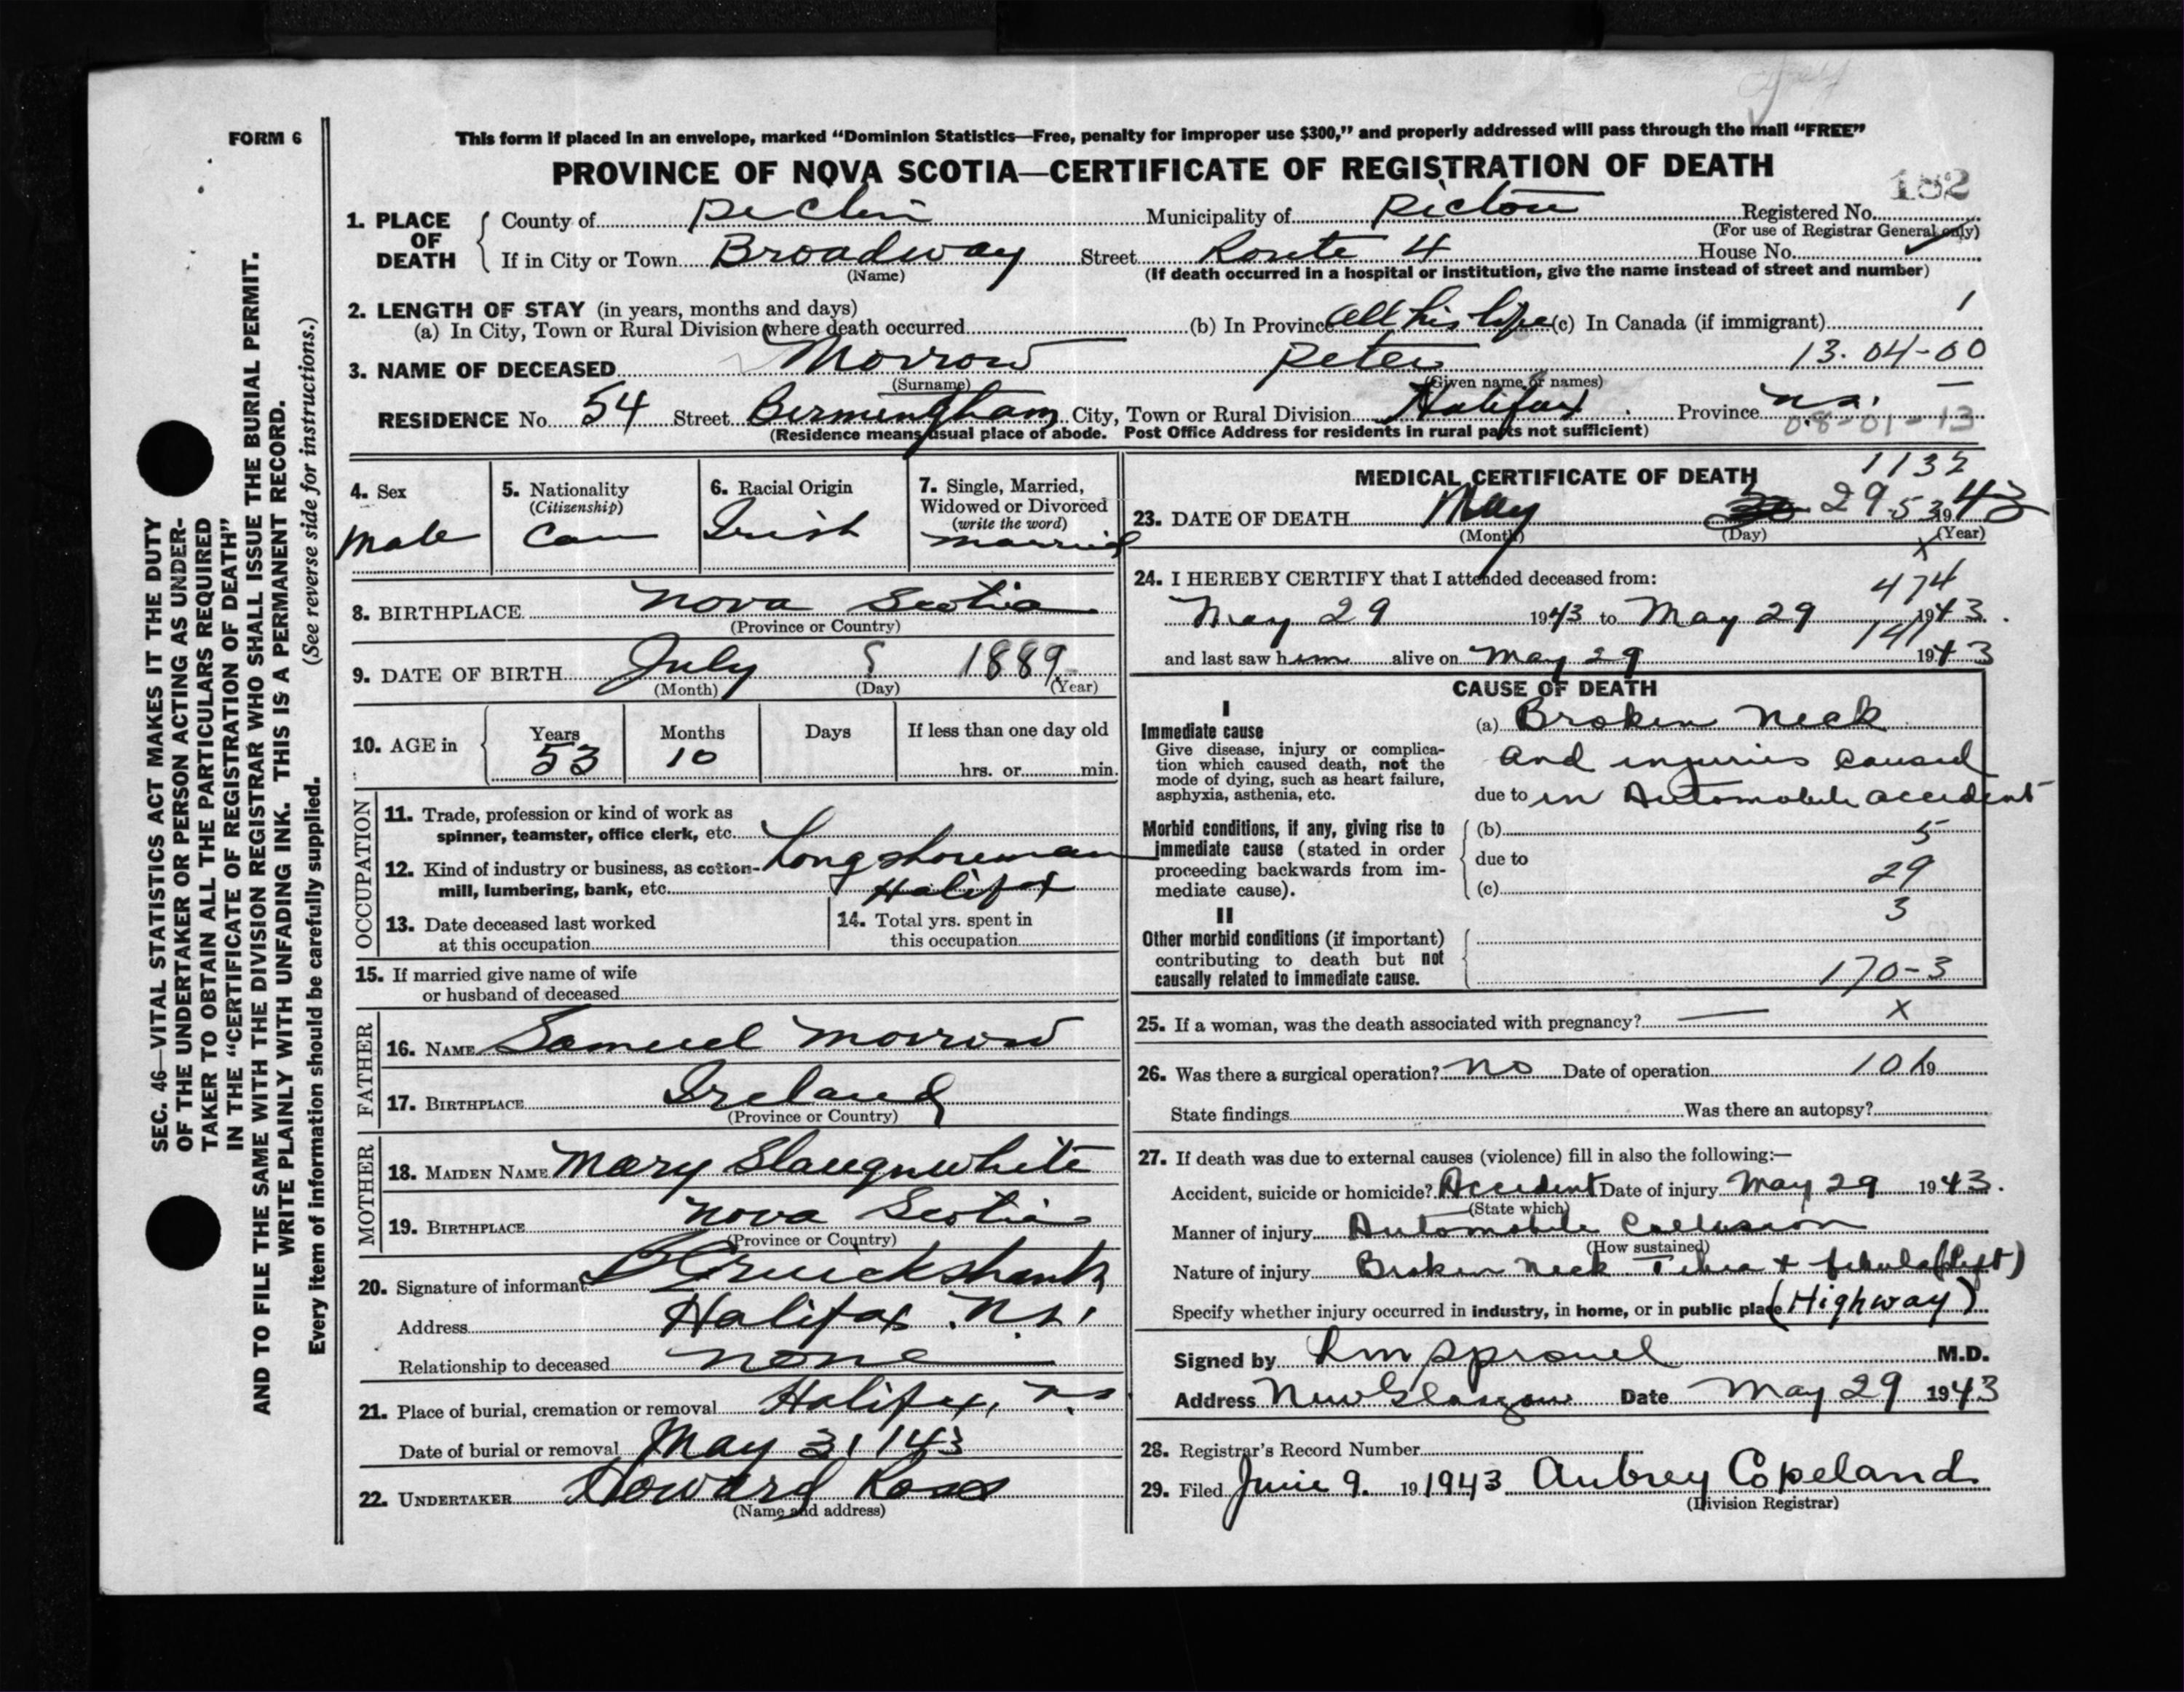 FORM 6
This form if placed in an envelope, marked "Dominion Statistics—Free, penalty for improper use $300," and properly addressed will pass through the mail "FREE"
PROVINCE OF NOVA SCOTIA—CERTIFICATE OF REGISTRATION OF DEATH
182
1. PLACE OF DEATH County of Municipality of Pictou Registered No.
(For use of Registrar General only)
If in City or Town Broadway Street Route 4 House No.
(Name) (If death occurred in a hospital or institution, give the name instead of street and number)
2. LENGTH OF STAY (in years, months and days)
(a) In City, Town or Rural Division (where death occurred (b) In Province All his life (c) In Canada (if immigrant) 1
3. NAME OF DECEASED Morrow Peter 13-04-00
(Surname) (Given name or names)
RESIDENCE No. 54 Street Bermingham City, Town or Rural Division Halifax Province N.S.
(Residence means usual place of abode. Post Office Address for residents in rural parts not sufficient) 08-01-13
SEC. 46—VITAL STATISTICS ACT MAKES IT THE DUTY
OF THE UNDERTAKER OR PERSON ACTING AS UNDER-
TAKER TO OBTAIN ALL THE PARTICULARS REQUIRED
IN THE "CERTIFICATE OF REGISTRATION OF DEATH"
AND TO FILE THE SAME WITH THE DIVISION REGISTRAR WHO SHALL ISSUE THE BURIAL PERMIT.
WRITE PLAINLY WITH UNFADING INK. THIS IS A PERMANENT RECORD.
Every item of information should be carefully supplied. (See reverse side for instructions.)
4. Sex 5. Nationality 6. Racial Origin 7. Single, Married,
(Citizenship) Widowed or Divorced
(write the word)
Male Can Irish Married
8. BIRTHPLACE Nova Scotia
(Province or Country)
9. DATE OF BIRTH July ? 1889
(Month) (Day) (Year)
10. AGE in Years Months Days If less than one day old
53 10 hrs. or min.
OCCUPATION
11. Trade, profession or kind of work as
spinner, teamster, office clerk, etc.
12. Kind of industry or business, as cotton- Longshoreman
mill, lumbering, bank, etc. Halifax
13. Date deceased last worked 14. Total yrs. spent in
at this occupation this occupation
15. If married give name of wife
or husband of deceased
FATHER
16. NAME Samuel Morrow
17. BIRTHPLACE Ireland
(Province or Country)
MOTHER
18. MAIDEN NAME Mary Slaugnwhite
19. BIRTHPLACE Nova Scotia
(Province or Country)
20. Signature of informant Cruickshanks
Address Halifax N.S.
Relationship to deceased none
21. Place of burial, cremation or removal Halifax, N.S.
Date of burial or removal May 31/43
22. UNDERTAKER Howard Ross
(Name and address)
MEDICAL CERTIFICATE OF DEATH 1132
23. DATE OF DEATH May 29 53 1943
(Month) (Day) (Year)
x
24. I HEREBY CERTIFY that I attended deceased from: 474
May 29 1943 to May 29 1943.
141
and last saw him alive on May 29 1943
CAUSE OF DEATH
I
Immediate cause (a) Broken Neck
Give disease, injury or complica-
tion which caused death, not the and injuries caused
mode of dying, such as heart failure,
asphyxia, asthenia, etc. due to in Automobile accident
Morbid conditions, if any, giving rise to (b) 5
immediate cause (stated in order due to
proceeding backwards from im- 29
mediate cause). (c)
3
II
Other morbid conditions (if important)
contributing to death but not
causally related to immediate cause. 170-3
25. If a woman, was the death associated with pregnancy? — x
26. Was there a surgical operation? No Date of operation 19
State findings Was there an autopsy?
27. If death was due to external causes (violence) fill in also the following:—
Accident, suicide or homicide? Accident Date of injury May 29 1943.
(State which)
Manner of injury Automobile Collision
(How sustained)
Nature of injury Broken Neck Tibia + fibula (Left)
Specify whether injury occurred in industry, in home, or in public place (Highway)
Signed by R M Sproul M.D.
Address New Glasgow Date May 29 1943
28. Registrar's Record Number
29. Filed June 9. 19 1943 Aubrey Copeland
(Division Registrar)